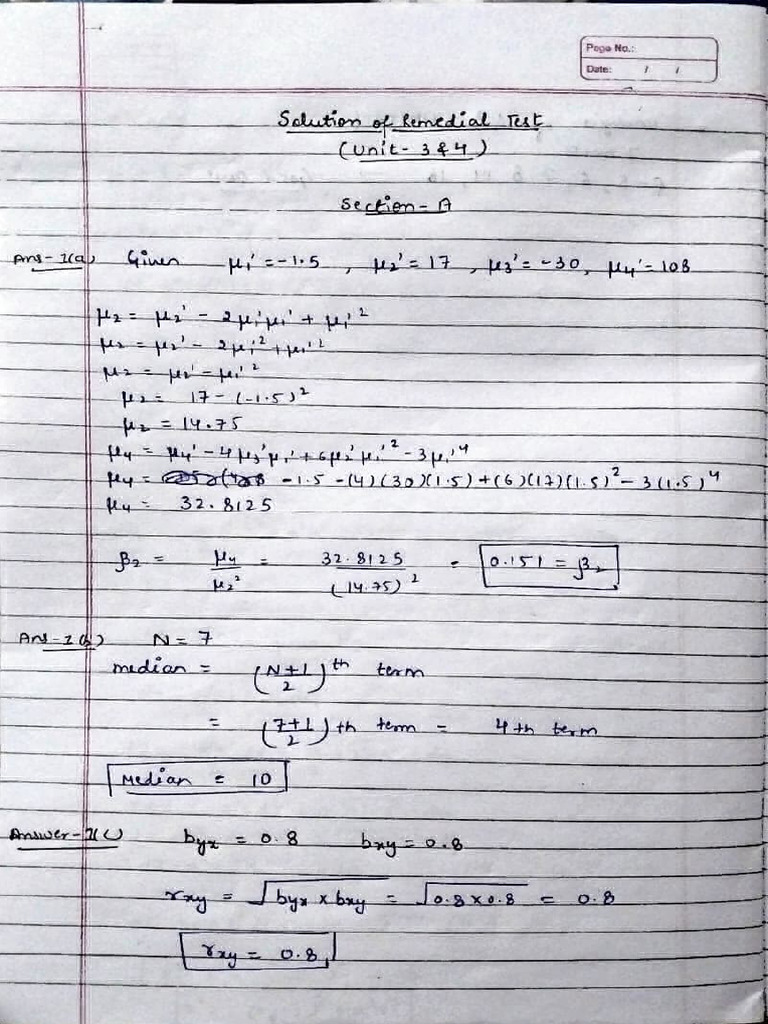 Page No.:
Date: / /
Solution of Remedial Test
(Unit- 3 & 4)
Section - A
Ans-1(a) Given μ₁' = -1.5 , μ₂' = 17 , μ₃' = -30, μ₄' = 108
μ₂ = μ₂' - 2μ₁'μ₁' + μ₁'²
μ₂ = μ₂' - 2μ₁'² + μ₁'²
μ₂ = μ₂' - μ₁'²
μ₂ = 17 - (-1.5)²
μ₂ = 14.75
μ₄ = μ₄' - 4μ₃'μ₁' + 6μ₂'μ₁'² - 3μ₁'⁴
μ₄ = -1.5 - (4)(30)(1.5) + (6)(17)(1.5)² - 3(1.5)⁴
μ₄ = 32.8125
β₂ = μ₄/μ₂² = 32.8125/(14.75)² = 0.151 = β₂
Ans-1(b) N = 7
median = (N+1/2)th term
= (7+1/2)th term = 4th term
Median = 10
Answer-1(c) byx = 0.8 bxy = 0.8
rxy = √byx × bxy = √0.8 × 0.8 = 0.8
rxy = 0.8